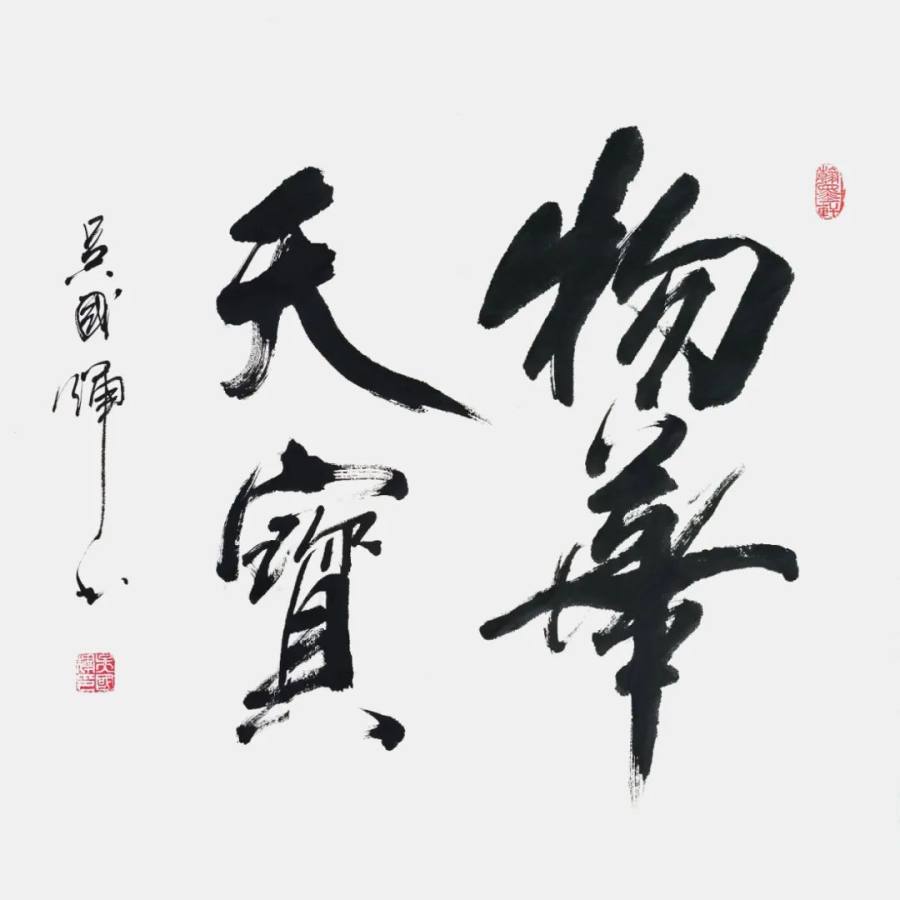 物華
天寶
吳國書